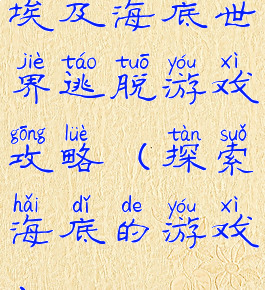 埃及海底世
jiè táo tuō yóu xì
界逃脱游戏
gōng lüè tàn suǒ
攻略（探索
hǎi dǐ de yóu xì
海底的游戏